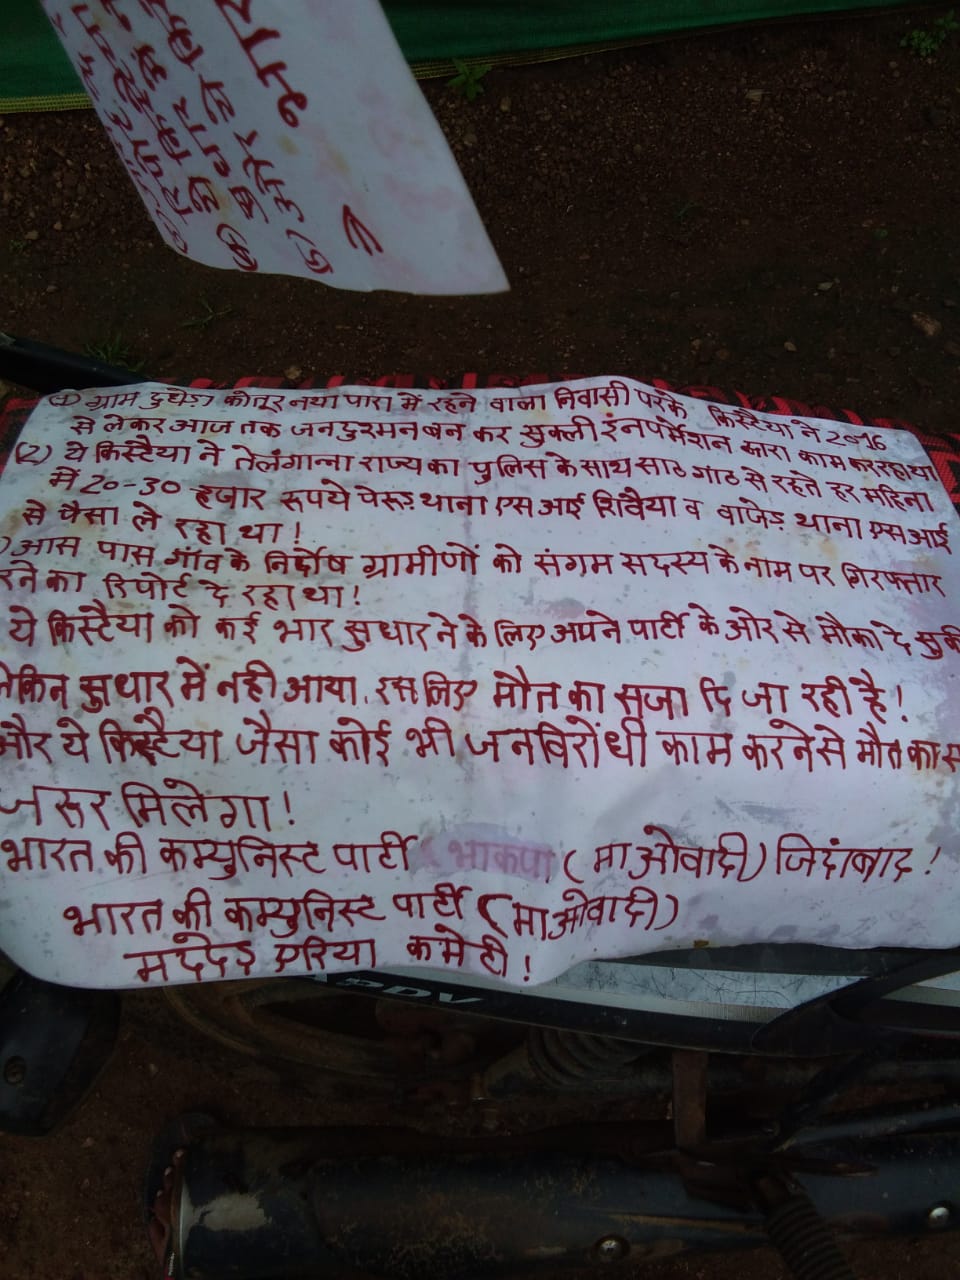 (1) ग्राम दुधेड़ा कोतूर नया पारा में रहने वाला निवासी परके किस्टैया ने 2016
से लेकर आज तक जनदुश्मन बन कर सुक्ली इंनपर्मेशन द्वारा काम कर रहा था
(2) ये किस्टैया ने तेलंगान्ना राज्य का पुलिस के साथ साठ गांठ से रहते हर महिना
में 20-30 हजार रूपये पेरूड़ थाना एस आई शिवैया व वाजेड़ थाना एस आई
से पैसा ले रहा था!
) आस पास गांव के निर्दोष ग्रामीणों को संगम सदस्य के नाम पर गिरफ्तार
रने का रिपोर्ट दे रहा था!
ये किस्टैया को कई भार सुधार ने के लिए अपने पार्टी के ओर से मौका दे चुकी
लेकिन सुधार में नही आया. इस लिए मौत का सजा दि जा रही है!
और ये किस्टैया जैसा कोई भी जनविरोधी काम करने से मौत का स
जरूर मिलेगा!
भारत की कम्युनिस्ट पार्टी (भाकपा (माओवादी) जिदांबाद!
भारत की कम्युनिस्ट पार्टी (माओवादी)
मददेड़ एरिया कमेटी!